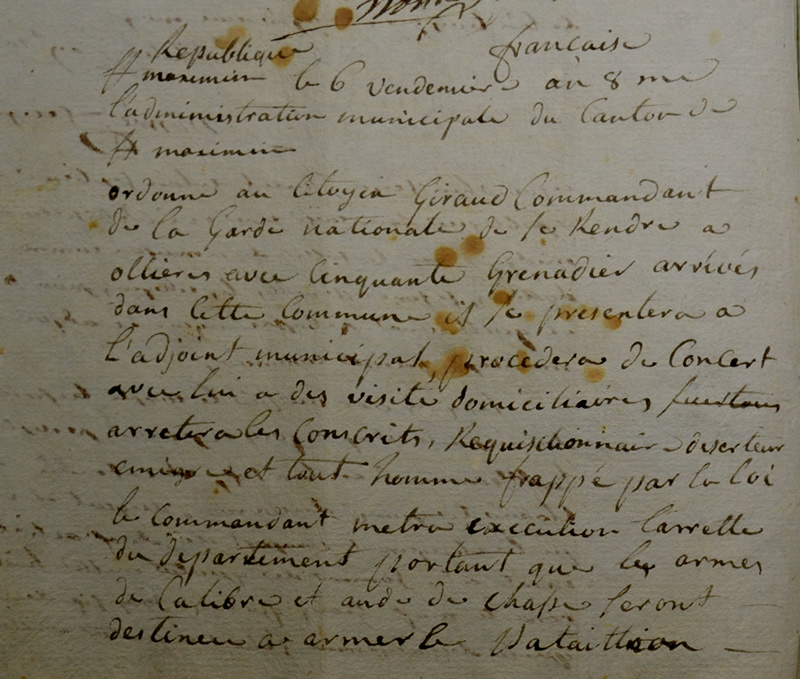 Republique francaise
St maximin le 6 vendemier an 8 me
l'administration municipale du Canton de
St maximin
ordonne au Citoyen Giraud Commandant
de la Garde nationale de se Rendre a
ollieres avec Cinquante Grenadier arrivés
dans Cette Commune il se presentera a
l'adjoint municipal, procèdera de Concert
avec lui a des visite domiciliaires
arretera les Conscrits, Requisitionnaire deserteur
emigré et tout homme frappé par la loi
le Commandant metra execution larrette
du departement portant que les armes
de Calibre et de chasse seront
destineu a armer le Bataillion